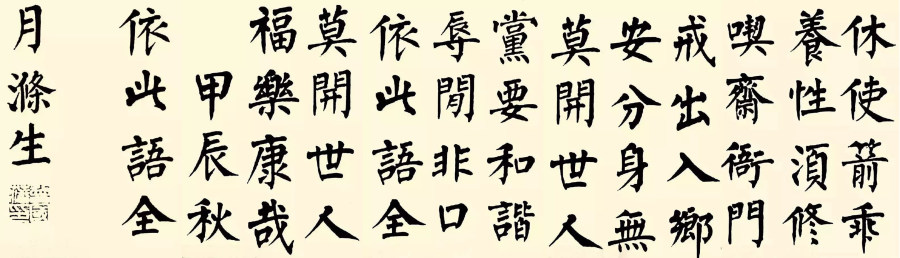 休使箭乖
養性湏修
喫齋衙門
戒出入鄉
安分身無
莫開世人
黨要和諧
辱閒非口
依此語全
莫開世人
福樂康哉
甲辰秋
依此語全
月滌生